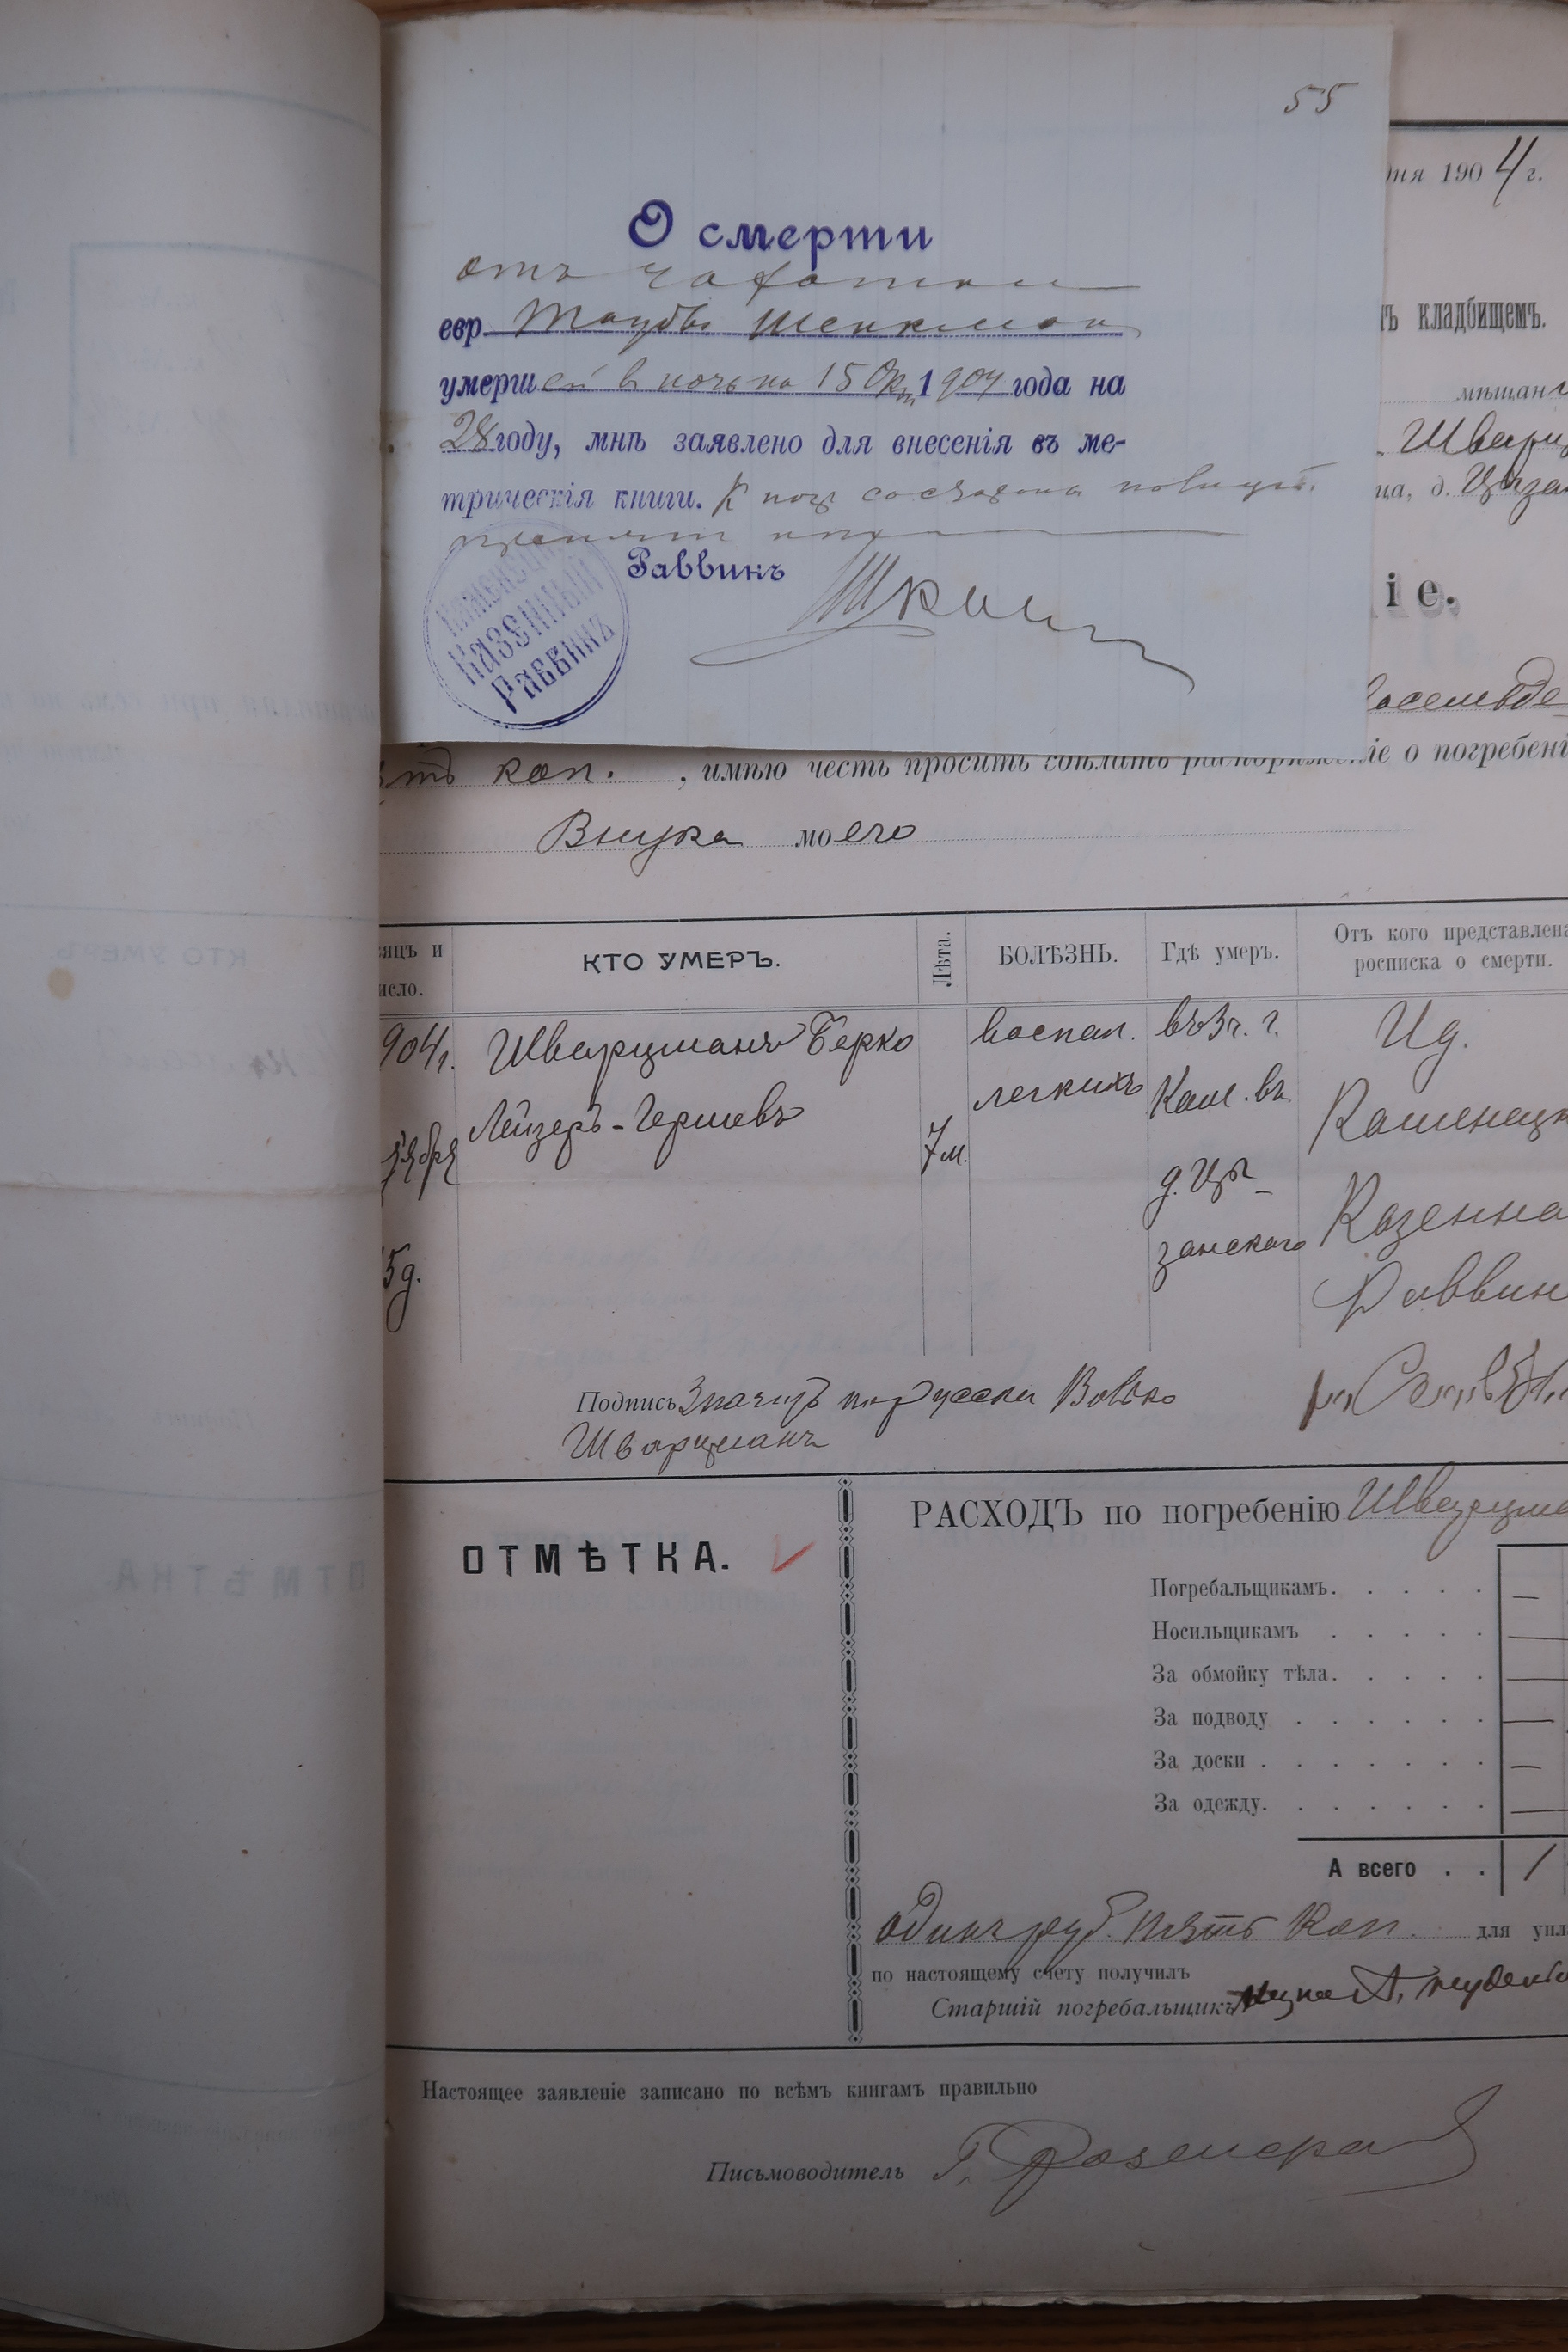 55
О смерти
отъ чахотки
евр Таубы Шенкман
умершей в ночь на 15 Окт 1904 года на
28 году, мнѣ заявлено для внесенія въ ме-
трическія книги. К
Раввинъ
КАЗЕННЫЙ
РАВВИНЪ
дня 1904 г.
кладбищемъ.
мѣщан
Шварц
ца, д. Цыза
іе.
коп. , имѣю честь просить сдѣлать распоряженіе о погребені
Внука моего
сяцъ и
исло.
КТО УМЕРЪ.
Лѣта.
БОЛѢЗНЬ.
Гдѣ умеръ.
Отъ кого представлена
росписка о смерти.
904 г.
5 д.
Шварцманъ Берко
Лейзеръ-Гершевъ
7 м.
воспал.
легкихъ
въ 3 ч. г.
Кам. въ
д. Цы-
занского
Ид.
Каменецк
Казенна
Раввин
Подпись Значитъ по русски Волько
Шварцманъ
ОТМѢТКА.
РАСХОДЪ по погребенію Шварцма
Погребальщикамъ. . . . . —
Носильщикамъ . . . . . —
За обмойку тѣла. . . . . —
За подводу . . . . . . —
За доски . . . . . . . —
За одежду. . . . . . . —
А всего . . 1
Одинъ руб. пять коп. для упл
по настоящему счету получилъ
Старшій погребальщикъ
Настоящее заявленіе записано по всѣмъ книгамъ правильно
Письмоводитель Г.
КТО УМЕРЪ.
ОТМѢТКА